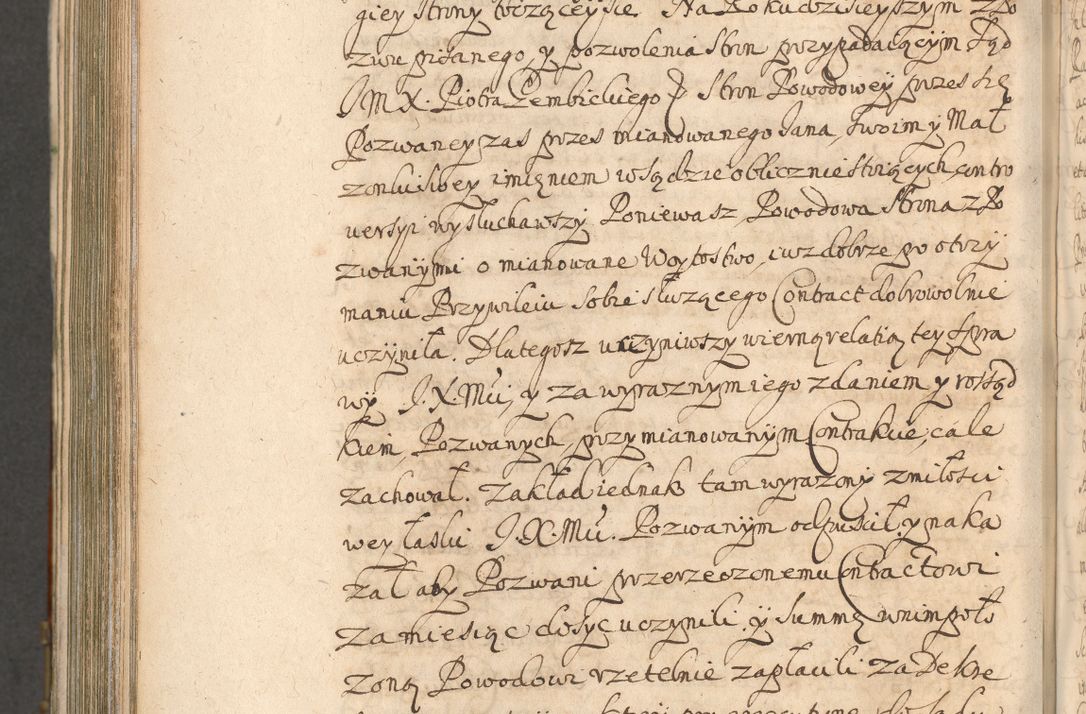 giey strony toczącey się. Na Roku dzisieyszym z Po
zwu pisanego, y pozwolenia stron przypadaiącym Sąd
J M X. Piotra Gembickiego P stron Powodowey przez się
Pozwaney zas przez mianowanego Jana, swoim y Mał
zonki swoey imieniem w sądzie oblicznie stoiących contro
uersyi wysłuchawszy Poniewasz Powodowa strona z Po
zwanymi o mianowane Woytostwo, iusz dobrze po otrzy
maniu Przywileiu sobie słuzącego Contract dobrowolnie
uczyniła. Dlategosz uczyniwszy wierną relatią tey spra
wy J. X. Mci, y za wyraznym iego zdaniem y rossąd
kiem, Pozwanych, przy mianowanym Contrakcie, cale
zachował. Zakład iednak tam wyrazony z miłości
wey łaski J. X. Mci. Pozwanym odpuscił, y naka
zał aby Pozwani przerzeczonemu Contractowi
za miesiąc dosyc uczynili, y summę w nim poło
zoną Powodowi rzetelnie zapłacili za Dekre